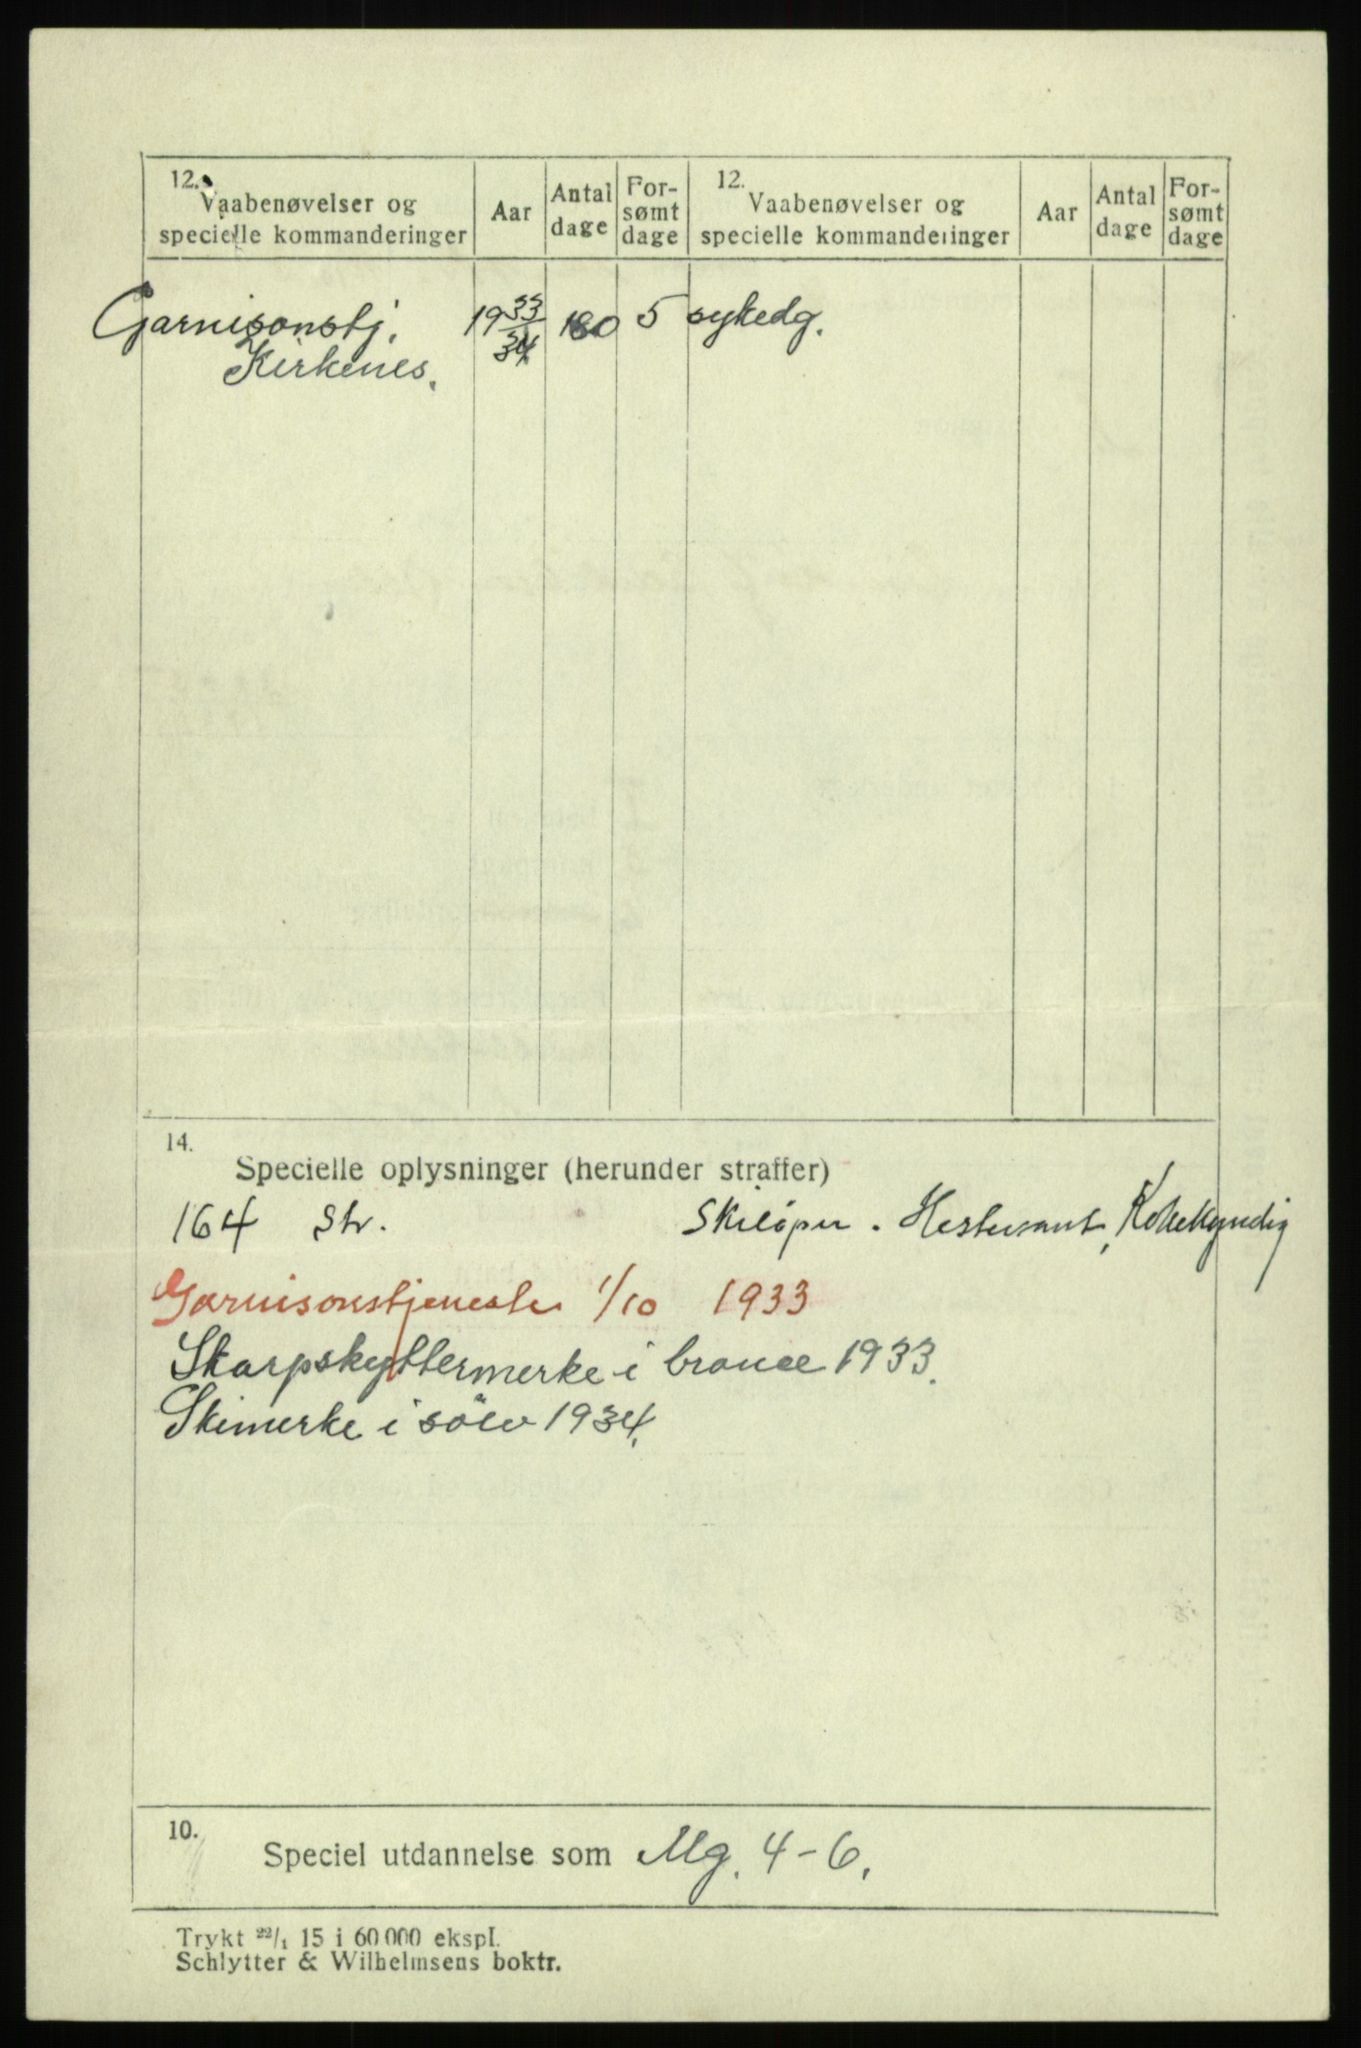 12. Vaabenøvelser og specielle kommanderinger Aar Antal dage For-sømt dage 12. Vaabenøvelser og specielle kommanderinger Aar Antal dage For-sømt dage
Garnisonstj. 19 33/34 180 5 sykedg.
Kirkenes.
14.
Specielle oplysninger (herunder straffer)
164 Str. Skiløper. Hestevant, Kokekyndig
Garnisonstjeneste 1/10 1933
Skarpskyttermerke i bronce 1933.
Skimerke i sölv 1934.
10.
Speciel utdannelse som Mg. 4-6.
Trykt 22/1 15 i 60 000 ekspl.
Schlytter & Wilhelmsens boktr.